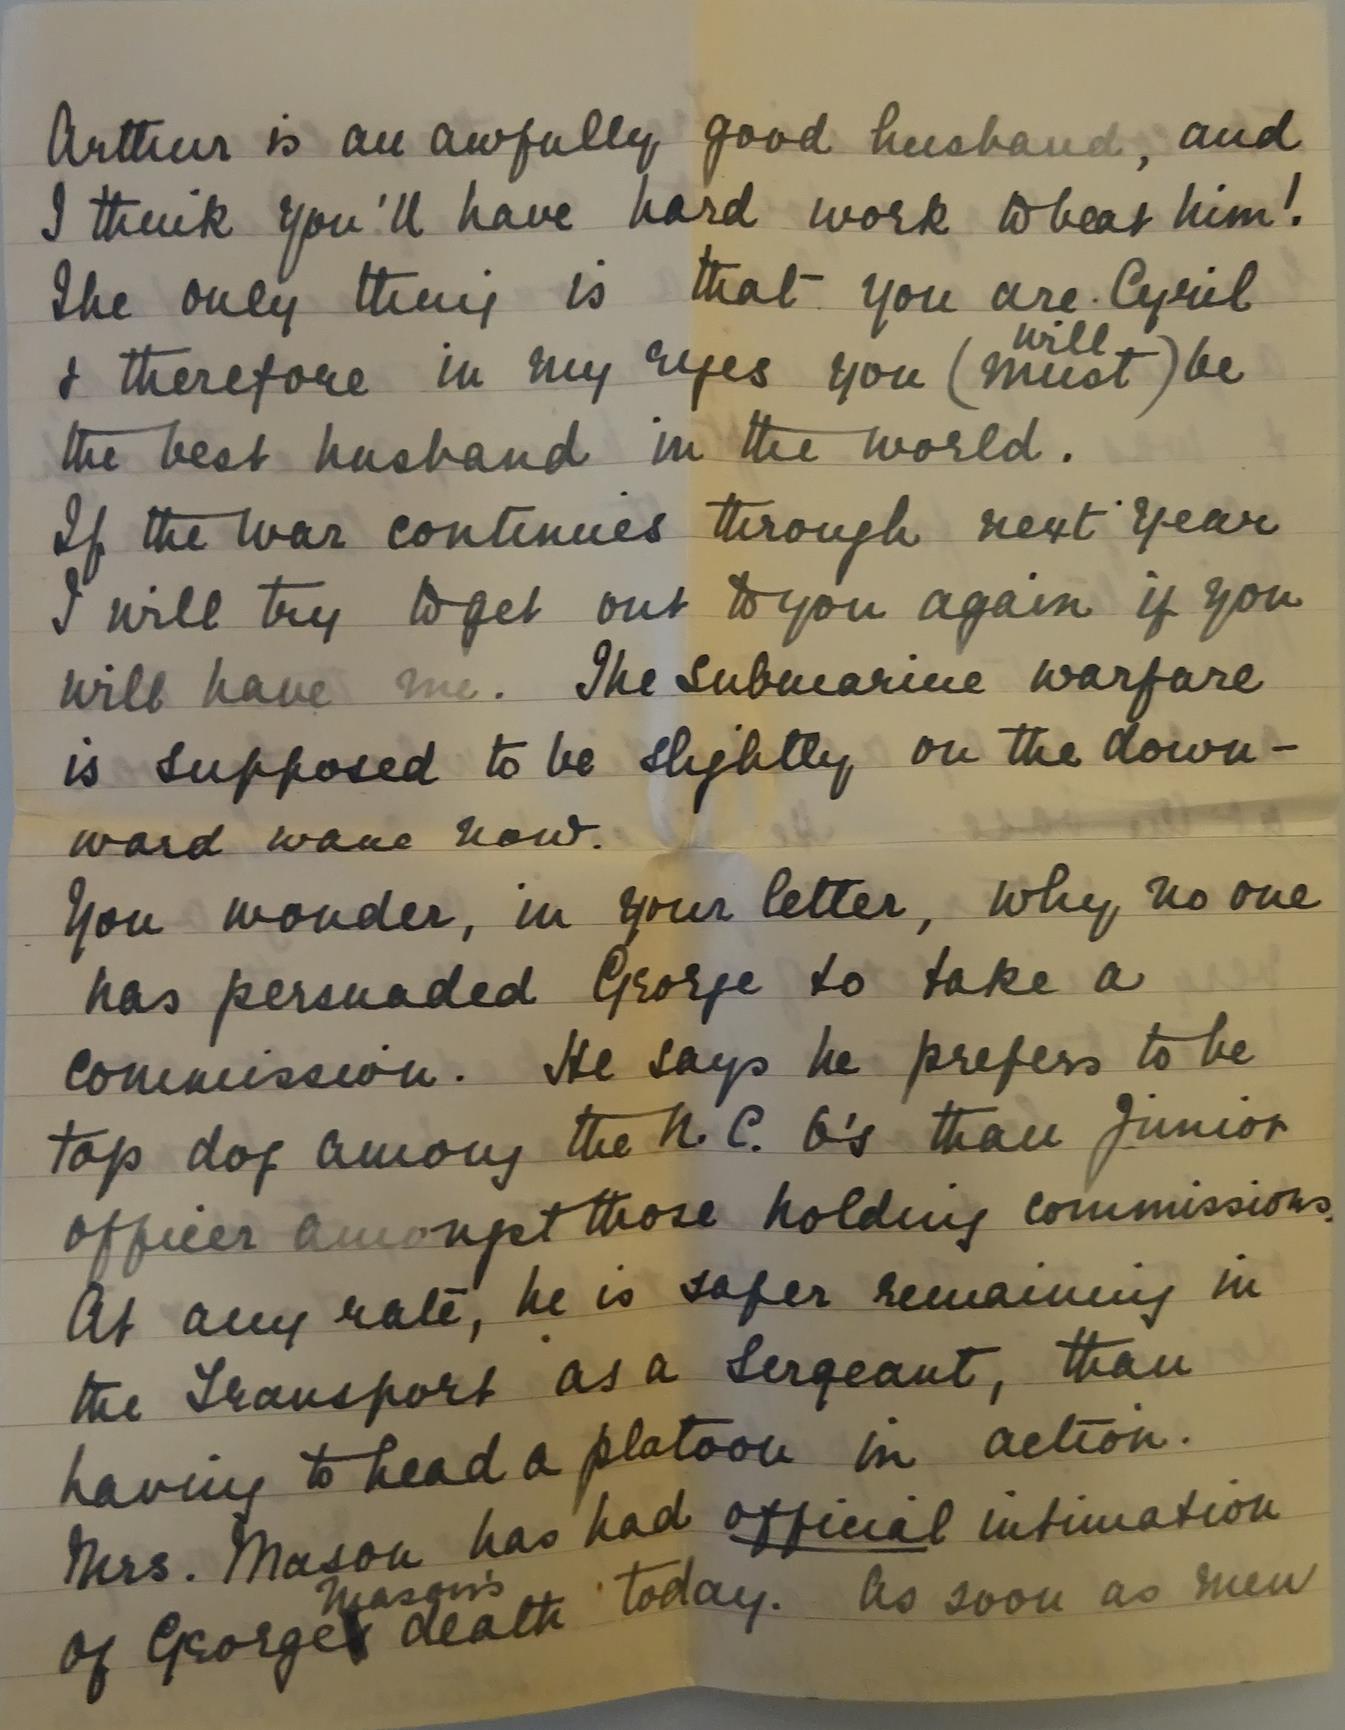 Arthur is an awfully good husband, and
I think you'll have hard work to beat him!
The only thing is that you are Cyril
& therefore in my eyes you (must will) be
the best husband in the world.
If the war continues through next year
I will try to get out to you again if you
will have me. The submarine warfare
is supposed to be slightly on the down-
ward wane now.
You wonder, in your letter, why no one
has persuaded George to take a
commission. He says he prefers to be
top dog among the N. C. O's than junior
officer amongst those holding commissions.
At any rate, he is safer remaining in
the Transport as a Sergeant, than
having to head a platoon in action.
Mrs. Mason has had official intimation
of George Mason's death today. As soon as men